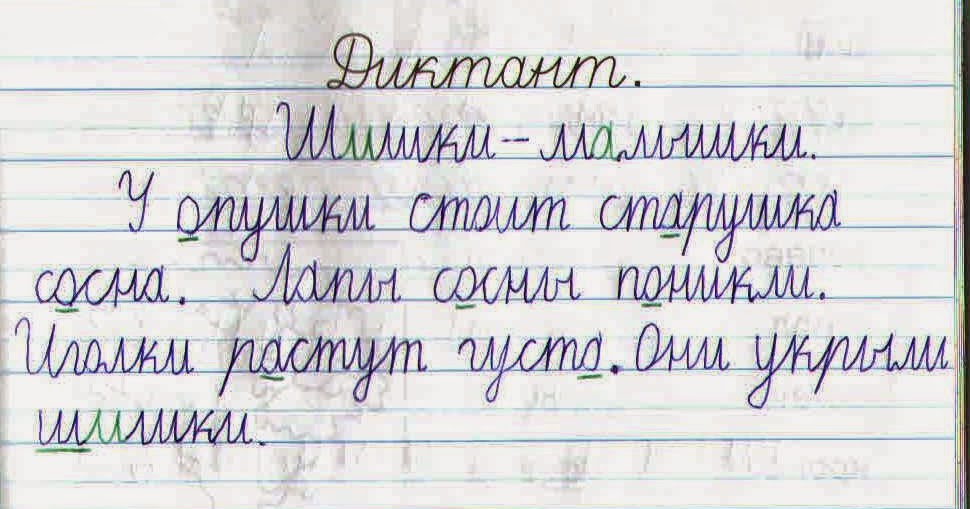 Диктант.
Шишки – малышки.
У опушки стоит старушка
сосна. Лапы сосны поникли.
Иголки растут густо. Они укрыли
шишки.